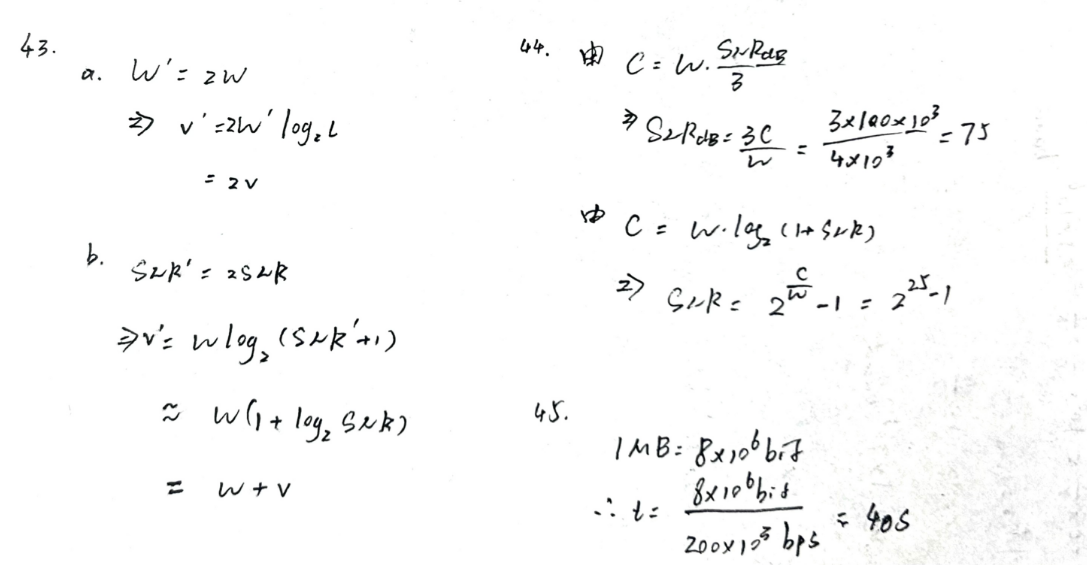 43.
a. W' = 2W
⇒ v' = 2W' log₂ L
= 2v
b. SNR' = 2SNR
⇒ v' = W log₂ (SNR' + 1)
≈ W(1 + log₂ SNR)
= W + V
44. 由 C = W · SNRdB / 3
⇒ SNRdB = 3C / W = 3×100×10³ / 4×10³ = 75
由 C = W · log₂ (1 + SNR)
⇒ SNR = 2^(C/W) - 1 = 2^25 - 1
45.
1MB = 8×10⁶ bit
∴ t = 8×10⁶ bit / 200×10³ bps = 40s